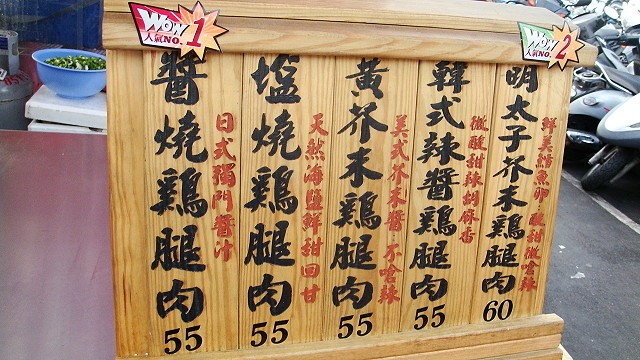 WOW
人氣NO.1
醬燒鷄腿肉
日式獨門醬汁
55
塩燒鷄腿肉
天然海鹽鮮甜回甘
55
黃芥末鷄腿肉
美式芥末醬 不嗆辣
55
韓式辣醬鷄腿肉
微酸甜辣胡麻香
55
WOW
人氣NO.2
明太子芥末鷄腿肉
鮮美鱈魚卵 酸甜微嗆辣
60